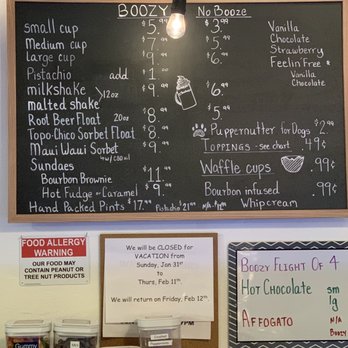 BOOZY No Booze
small cup $5.99 $3.99
Medium cup $7.99 $5.99
Large cup $9.99 $6.99
Pistachio add $1.00
milkshake >12oz $9.99 $6.99
malted shake
Root Beer Float 20oz $8.99 $5.99
Topo-Chico Sorbet Float $8.99
Maui Waui Sorbet $9.99
Sundaes
Bourbon Brownie $11.99
Hot Fudge or Caramel $9.99
Hand Packed Pints $17.99 Pistachio $21.99 N/A
Vanilla
Chocolate
Strawberry
Feelin' Free *
Vanilla
Chocolate
Puppernutter for Dogs $2.99
TOPPINGS - see chart .49¢
Waffle cups .99¢
Bourbon infused .99¢
Whipcream
FOOD ALLERGY
WARNING
OUR FOOD
MAY CONTAIN PEANUT OR
TREE NUT PRODUCTS
We will be CLOSED for
VACATION from
Sunday, Jan 31st
to
Thurs, Feb 11th.
We will return on Friday, Feb 12th.
PM
BOOZY FLIGHT OF 4
HOT CHOCOLATE sm
lg
AFFOGATO N/A
BOOZY
Gummy